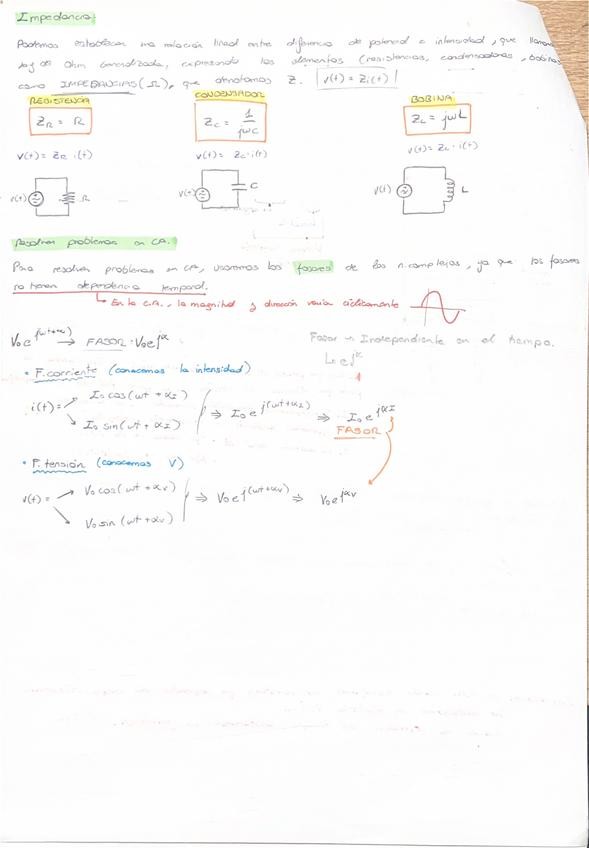 Impedancia
Podemos establecer una relación lineal entre diferencia de potencial e intensidad, que
ley de Ohm Generalizada, expresando los elementos (resistencias, condensadores, bobinas
como IMPEDANCIAS (Ω), que denotamos Z. v(t) = Z i(t)
RESISTENCIA CONDENSADOR BOBINA
Z_R = R Z_C = 1/jωC Z_L = jωL
v(t) = Z_R i(t) v(t) = Z_C · i(t) v(t) = Z_L · i(t)
v(t) R v(t) C v(t) L
Resolver problemas en CA.
Para resolver problemas en CA, usaremos los fasores de los n.complejos, ya que los fasores
no tienen dependencia temporal.
En la C.A., la magnitud y dirección varía cíclicamente
V₀e^j(ωt+α) → FASOR: V₀e^jα Fasor → Independiente en el tiempo.
e^jα
• F. corriente (conocemos la intensidad)
i(t) = I₀ cos(ωt + α_I)
I₀ sin(ωt + α_I) ⇒ I₀ e^j(ωt+α_I) ⇒ I₀ e^jα_I
FASOR
• F. tensión (conocemos V)
v(t) = V₀ cos(ωt + α_V)
V₀ sin(ωt + α_V) ⇒ V₀ e^j(ωt+α_V) ⇒ V₀ e^jα_V